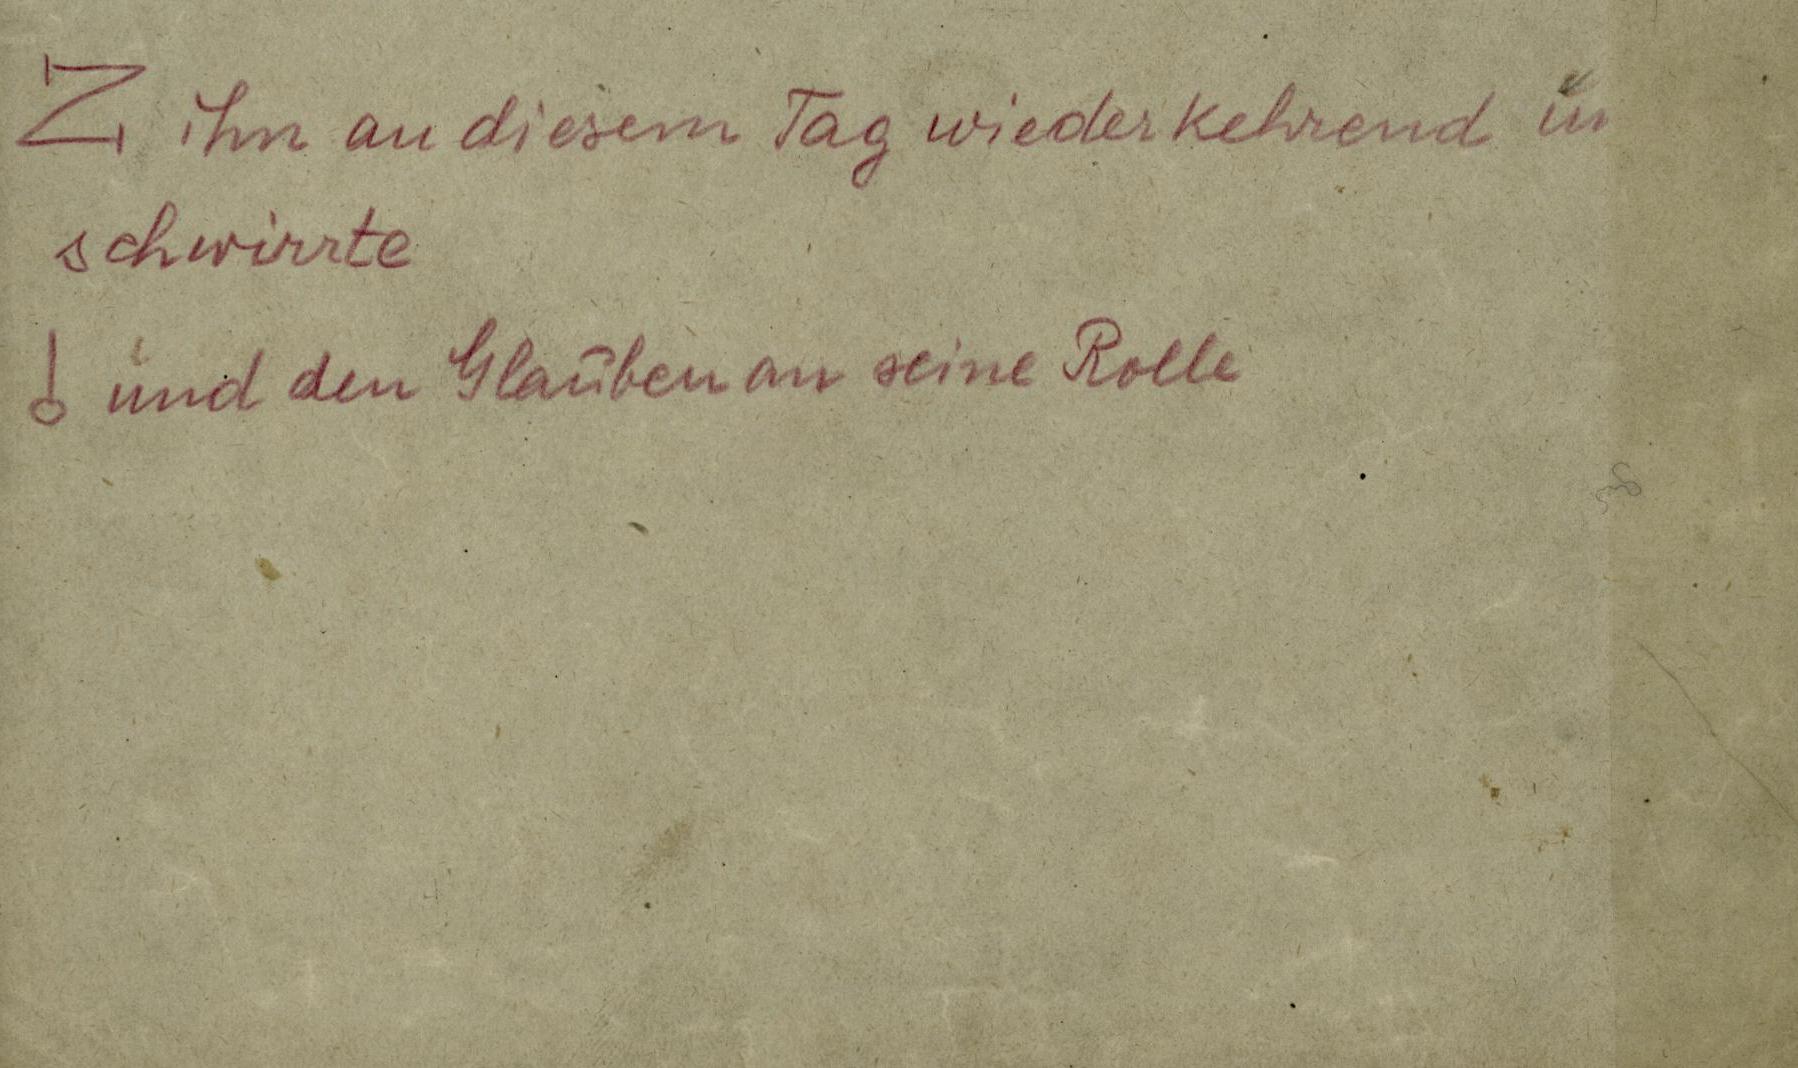 Z ihn an diesem Tag wiederkehrend
schwirrte
und den Glauben an seine Rolle